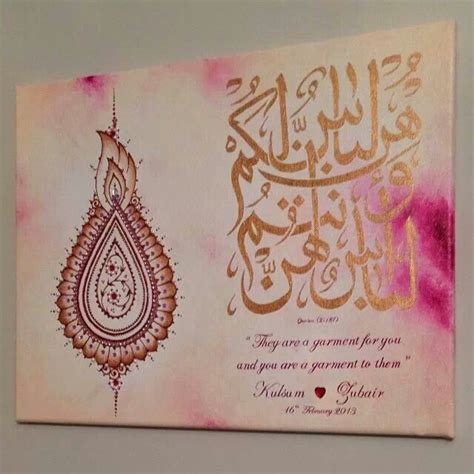 هن لباس لكم
وأنتم
لباس لهن
Qur'an (2:187)
"They are a garment for you
and you are a garment to them"
Kulsum Zubair
16th February 2013